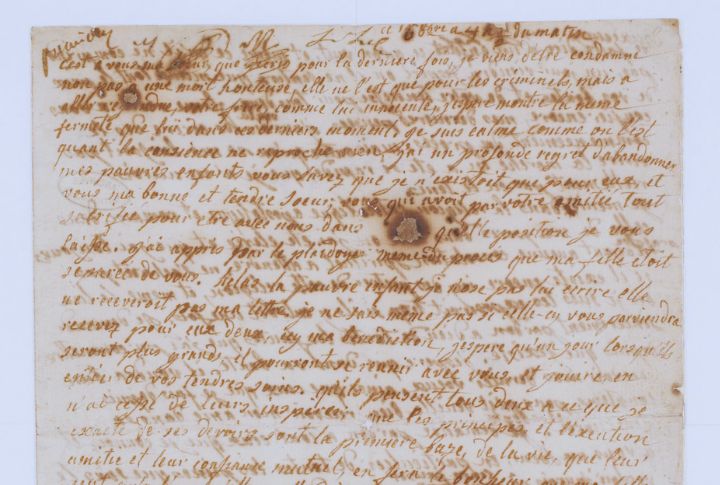 ce 16 8bre a 4 h ½ du matin
c'est a vous ma soeur, que j'ecris pour la derniere fois, je viens detre condamnee
non pas a une mort honteuse, elle ne l'est que pour les criminels, mais a
aller rejoindre votre frere, comme lui innocente, j'espere montrer la meme
fermeté que lui dans ces derniers moments. je suis calme comme on l'est
quant la consience ne reproche rien, j'ai un profonde regret d'abandonner
mes pauvres enfants vous savez que je n'existoit que pour eux, et
vous ma bonne et tendre soeur, vous qui avoit par votre amitie tout
sacrifie pour etre avec nous dans quelle position je vous
laisse. j'ai appris par le plaidoyer meme du procès que ma fille etoit
separée de vous. helas la pauvre enfant je n'ose pas lui ecrire elle
ne receveroit pas ma lettre. je ne sais meme pas si celle-cy vous parviendra
recevez pour eux deux icy ma benediction. j'espere qu'un jour lorsqu'ils
seront plus grands, il pourront se reunir avec vous, et jouire en
entier de vos tendres soins. qu'ils pensent tous deux a ce que je
n'ai cessé de leurs inspirer. que les principes et l'execution
exacte de ses devoirs sont la premiere base, de la vie, que leur
amitie et leur confiance mutuel en fera le bonheur